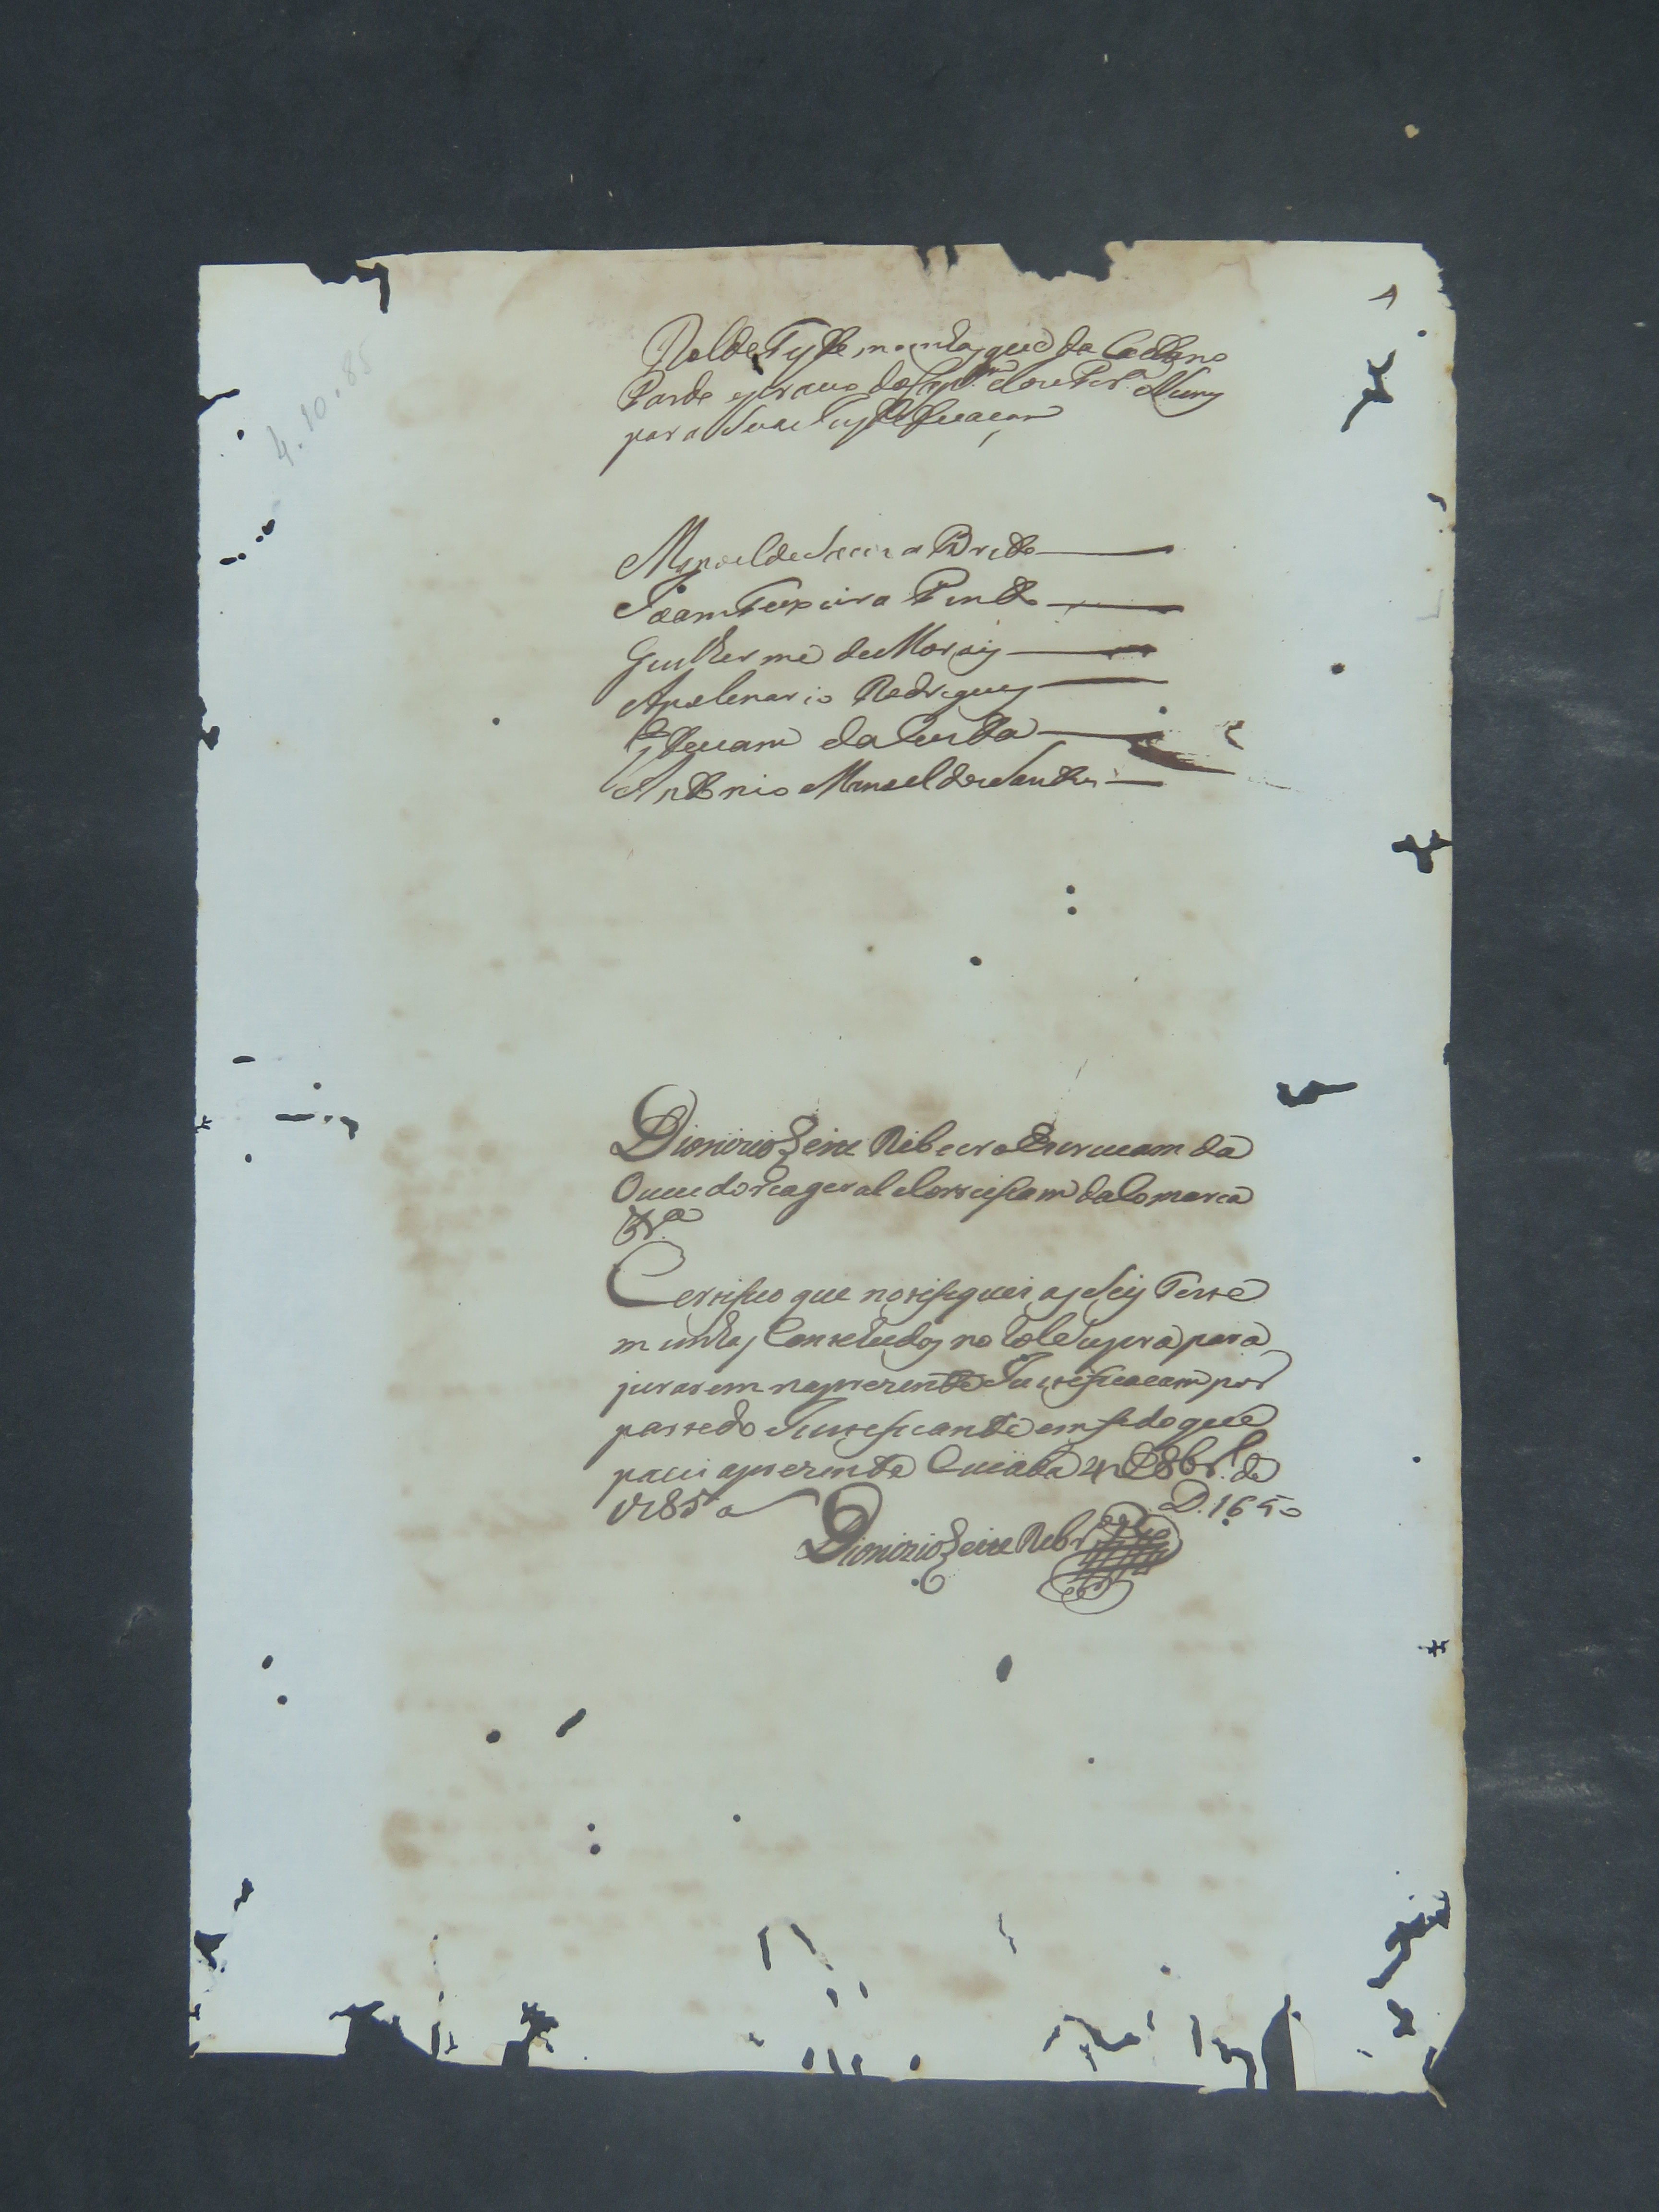 4.10.85
Rol de Tystemunhas que da Caetano
Pardo escravo do Capᵐ Joze Perª Nuny
para Sua Justeficacam
Manoel de Brito
Joam Teixeira Pinto
Guilherme de Morais
Apolenario Rodrigues
Estevam da Costa
Antonio Manoel dos Santos
Dionizio Freire Ribeiro Escrivam da
Ouvedoria geral e Correiscam da Comarca
&ª
Certifico que notefiquei as Seis Teste
munhas Conteudas no Rol Supra para
jurarem na prezente Justeficacam por
parte do Justeficante em fe do que
pacei a prezente Cuiabá 4 de 8brº de
1785 a
Dionizio Freire Ribrº